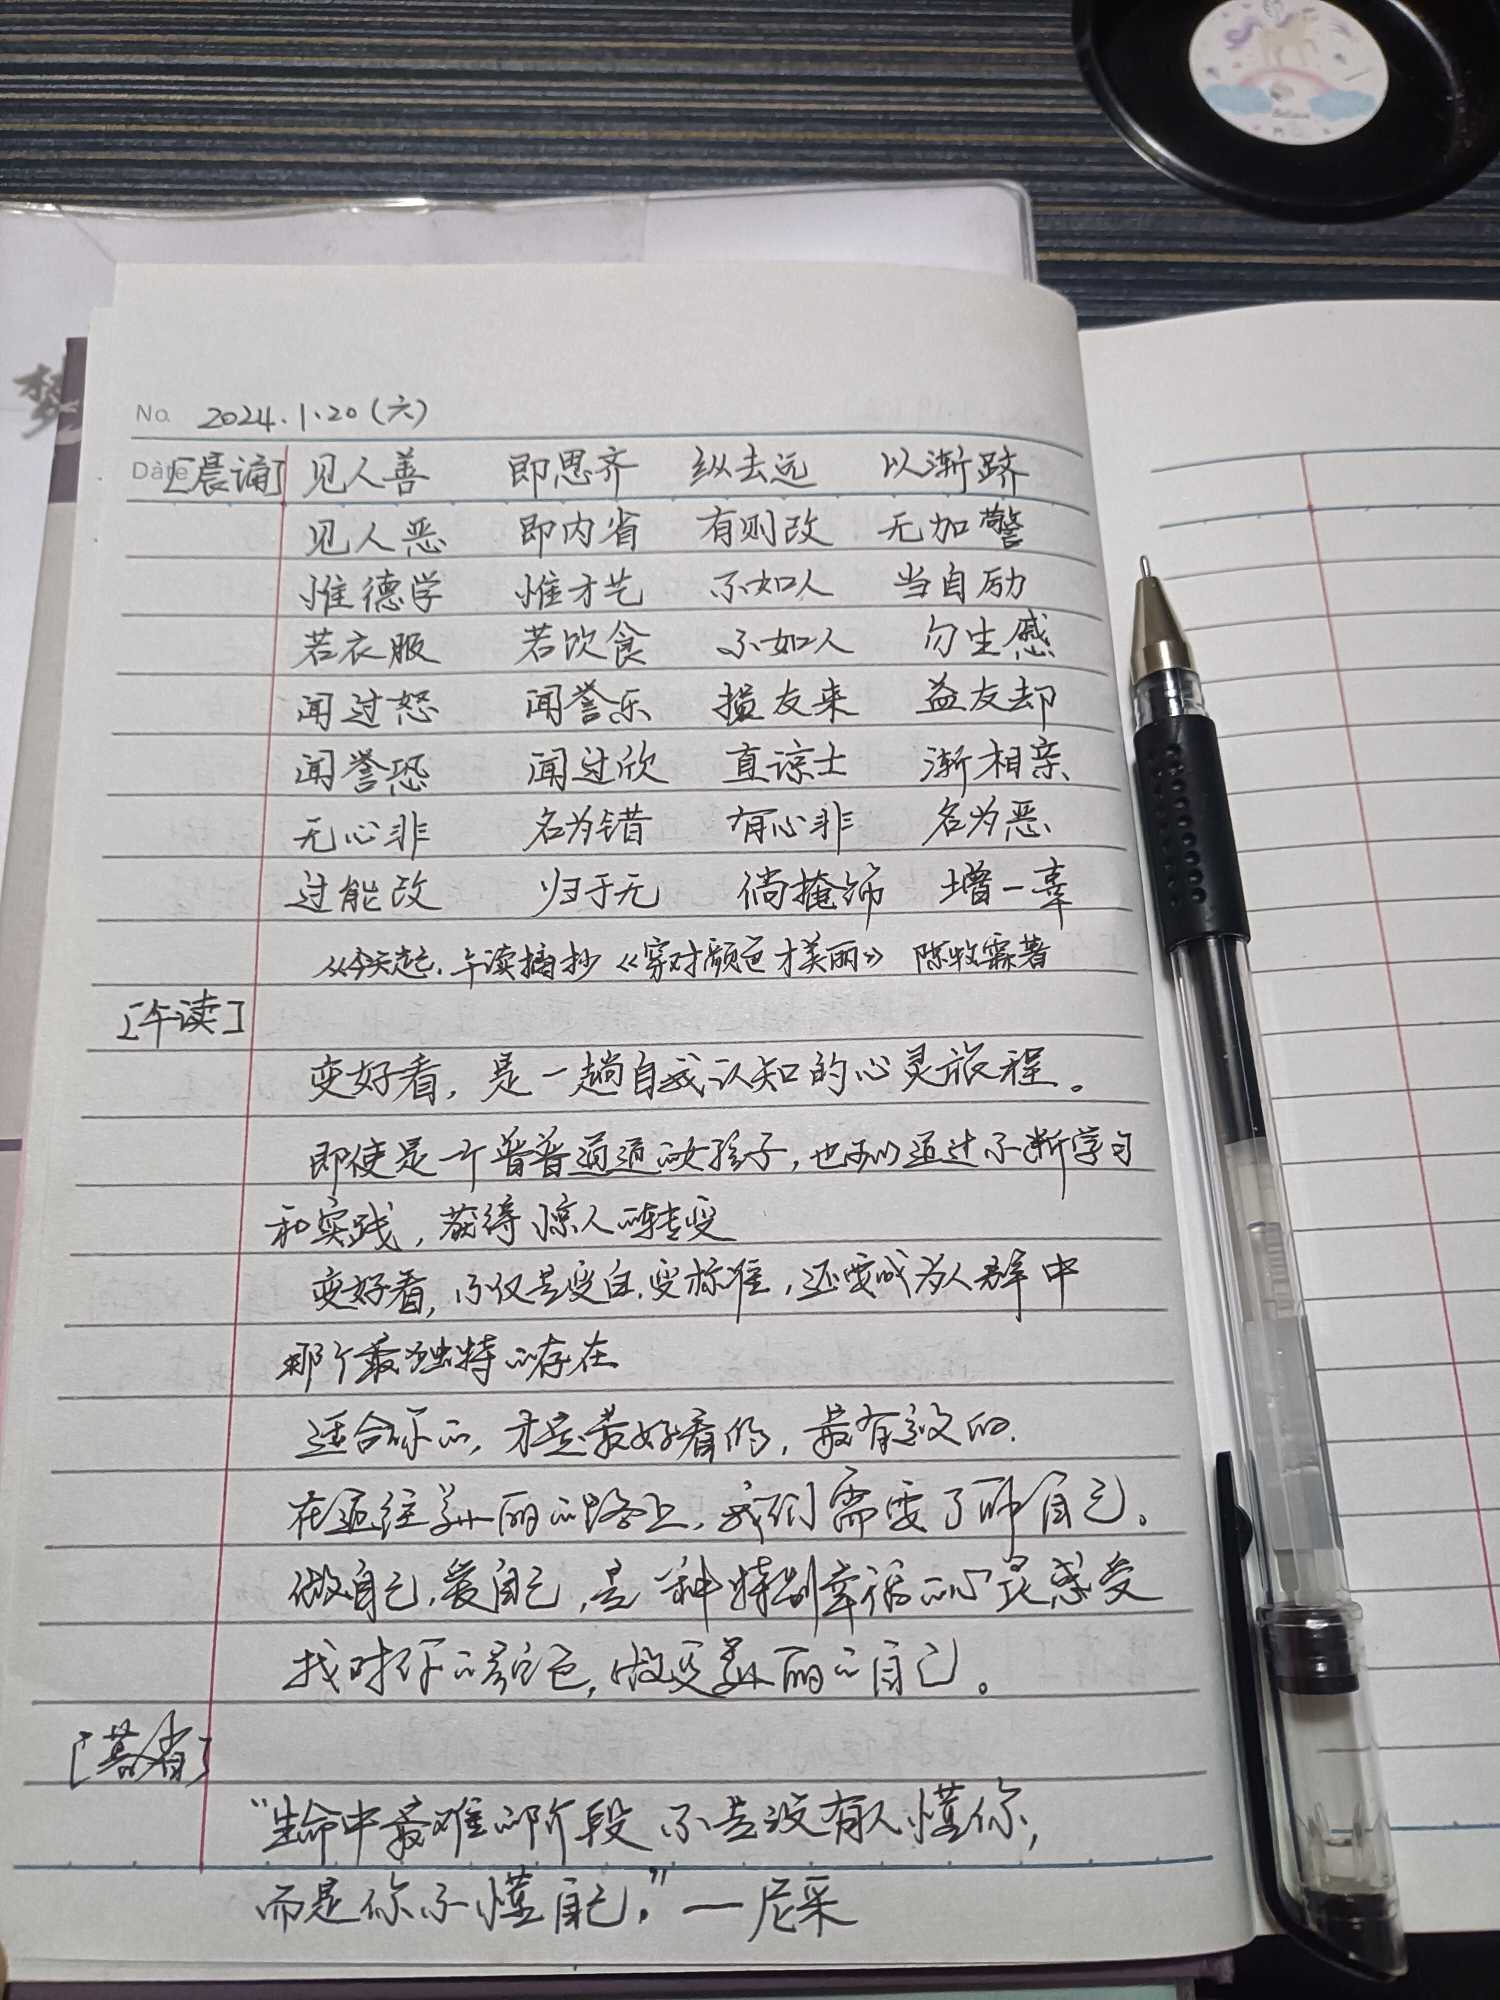 Believe
梦
No. 2024.1.20(六)
Date [晨诵] 见人善 即思齐 纵去远 以渐跻
见人恶 即内省 有则改 无加警
惟德学 惟才艺 不如人 当自励
若衣服 若饮食 不如人 勿生慼
闻过怒 闻誉乐 损友来 益友却
闻誉恐 闻过欣 直谅士 渐相亲
无心非 名为错 有心非 名为恶
过能改 归于无 倘掩饰 增一辜
从今天起，午读摘抄《穿对颜色才美丽》 陈牧霖著
[午读]
变好看，是一趟自我认知的心灵旅程。
即使是一个普普通通的女孩子，也可以通过不断学习
和实践，获得惊人的转变
变好看，不仅是变白、变标准，还要成为人群中
那个最独特的存在
适合你的，才是最好看的，最有效的.
在通往美丽的路上，我们需要了解自己。
做自己，爱自己，是一种特别幸福的心灵感受
找对你的颜色，做更美丽的自己。
[暮省]
“生命中最难的阶段 不是没有人懂你，
而是你不懂自己。”—尼采